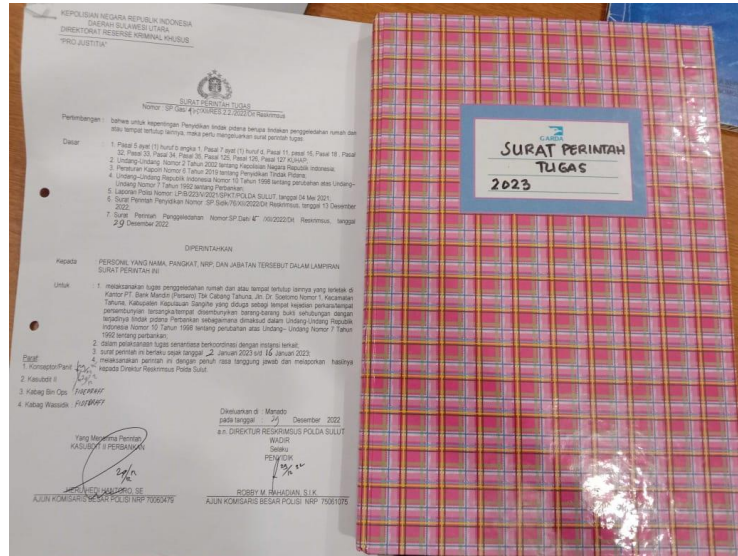 KEPOLISIAN NEGARA REPUBLIK INDONESIA
DAERAH SULAWESI UTARA
DIREKTORAT RESERSE KRIMINAL KHUSUS
"PRO JUSTITIA"
SURAT PERINTAH TUGAS
Nomor : SP.Gas/ /XII/RES.2.2./2022/Dit Reskrimsus
Pertimbangan : bahwa untuk kepentingan Penyidikan tindak pidana berupa tindakan penggeledahan rumah dan
atau tempat tertutup lainnya, maka perlu mengeluarkan surat perintah tugas.
Dasar : 1. Pasal 5 ayat (1) huruf b angka 1, Pasal 7 ayat (1) huruf d, Pasal 11, pasal 16, Pasal 18, Pasal
32, Pasal 33, Pasal 34, Pasal 36, Pasal 125, Pasal 126, Pasal 127 KUHAP;
2. Undang-Undang Nomor 2 Tahun 2002 tentang Kepolisian Negara Republik Indonesia;
3. Peraturan Kapolri Nomor 6 Tahun 2019 tentang Penyidikan Tindak Pidana;
4. Undang-Undang Republik Indonesia Nomor 10 Tahun 1998 tentang perubahan atas Undang-
Undang Nomor 7 Tahun 1992 tentang Perbankan;
5. Laporan Polisi Nomor: LP/B/223/V/2021/SPKT/POLDA SULUT, tanggal 04 Mei 2021;
6. Surat Perintah Penyidikan Nomor :SP.Sidik/76/XII/2022/Dit Reskrimsus, tanggal 13 Desember
2022;
7. Surat Perintah Penggeledahan Nomor:SP.Dah/ /XII/2022/Dit Reskrimsus, tanggal
29 Desember 2022.
DIPERINTAHKAN
Kepada : PERSONIL YANG NAMA, PANGKAT, NRP, DAN JABATAN TERSEBUT DALAM LAMPIRAN
SURAT PERINTAH INI
Untuk : 1. melaksanakan tugas penggeledahan rumah dan atau tempat tertutup lainnya yang terletak di
Kantor PT. Bank Mandiri (Persero) Tbk Cabang Tahuna, Jln. Dr. Soetomo Nomor 1, Kecamatan
Tahuna, Kabupaten Kepulauan Sangihe yang diduga sebagai tempat kejadian perkara/tempat
persembunyian tersangka/tempat disembunyikan barang-barang bukti sehubungan dengan
terjadinya tindak pidana Perbankan sebagaimana dimaksud dalam Undang-Undang Republik
Indonesia Nomor 10 Tahun 1998 tentang perubahan atas Undang– Undang Nomor 7 Tahun
1992 tentang perbankan;
2. dalam pelaksanaan tugas senantiasa berkoordinasi dengan instansi terkait;
3. surat perintah ini berlaku sejak tanggal 2 Januari 2023 s/d 16 Januari 2023;
4. melaksanakan perintah ini dengan penuh rasa tanggung jawab dan melaporkan hasilnya
kepada Direktur Reskrimsus Polda Sulut.
Paraf
1. Konseptor/Panit :
2. Kasubdit II :
3. Kabag Bin Ops :
4. Kabag Wassidik :
Dikeluarkan di : Manado
pada tanggal : 29 Desember 2022
a.n. DIREKTUR RESKRIMSUS POLDA SULUT
WADIR
Selaku
PENYIDIK
Yang Menerima Perintah
KASUBDIT II PERBANKAN
HERU HEDI HANTORO, SE
AJUN KOMISARIS BESAR POLISI NRP 70060479
ROBBY M. RAHADIAN, S.I.K.
AJUN KOMISARIS BESAR POLISI NRP 75061075
GARDA
SURAT PERINTAH
TUGAS
2023